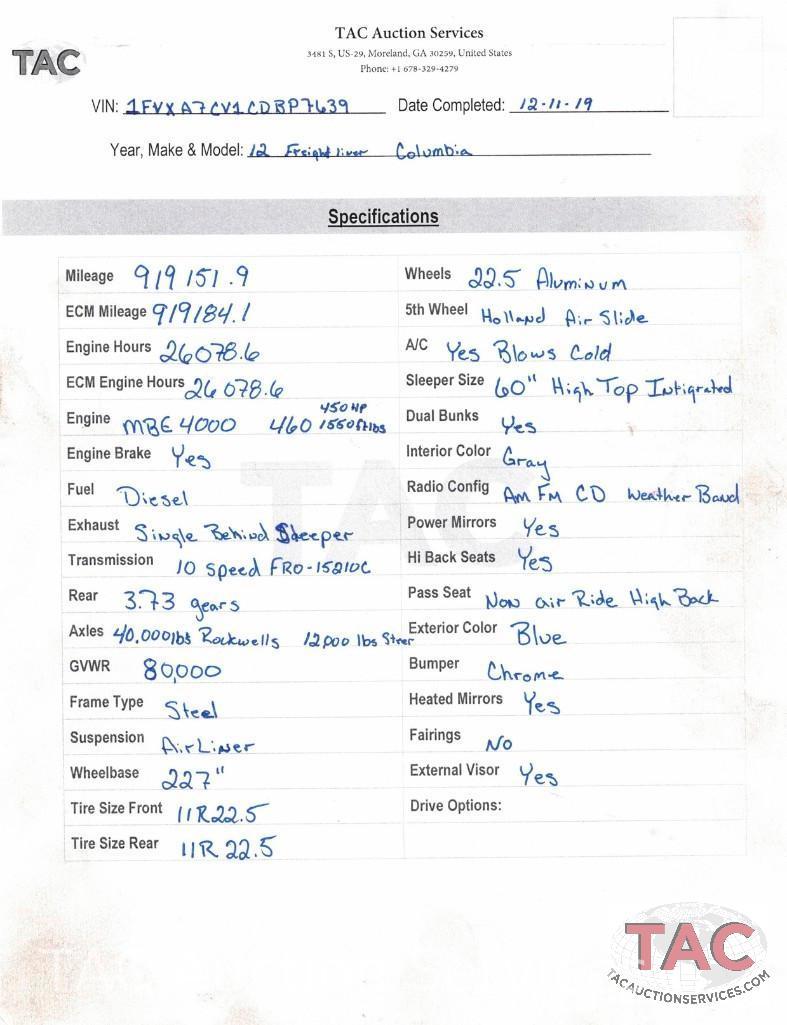 TAC Auction Services
3481 S, US-29, Moreland, GA 30259, United States
Phone: +1 678-329-4279
TAC
VIN: 1FVXA7CV1CDBP7639 Date Completed: 12-11-19
Year, Make & Model: 12 Freightliner Columbia
Specifications
Mileage 919151.9
ECM Mileage 919184.1
Engine Hours 26078.6
ECM Engine Hours 26078.6
Engine MBE 4000 460 450 HP 1550 ft lbs
Engine Brake Yes
Fuel Diesel
Exhaust Single Behind Sleeper
Transmission 10 Speed FRO-15210C
Rear 3.73 gears
Axles 40,000lbs Rockwells 12,000 lbs Steer
GVWR 80,000
Frame Type Steel
Suspension AirLiner
Wheelbase 227"
Tire Size Front 11R22.5
Tire Size Rear 11R 22.5
Wheels 22.5 Aluminum
5th Wheel Holland Air Slide
A/C Yes Blows Cold
Sleeper Size 60" High Top Intigrated
Dual Bunks Yes
Interior Color Gray
Radio Config Am Fm CD Weather Band
Power Mirrors Yes
Hi Back Seats Yes
Pass Seat Non air Ride High Back
Exterior Color Blue
Bumper Chrome
Heated Mirrors Yes
Fairings No
External Visor Yes
Drive Options:
TAC
TAC
TACAUCTIONSERVICES.COM